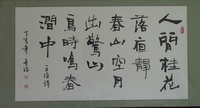 人閒桂花
落夜靜
春山空月
出驚山
鳥時鳴春
澗中 王維詩